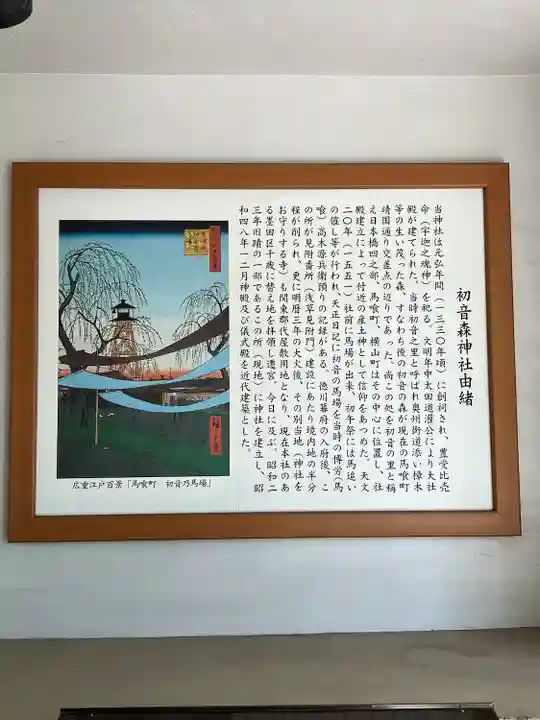 初音森神社由緒
当神社は元弘年間(一三三〇年頃)に創祀され、豊受比売
命(宇迦之魂神)を祀る。文明年中太田道灌公により大社
殿が建てられた。当時初音之里と呼ばれ奥州街道添い樟木
等の生い茂った森、すなわち後の初音の森が現在の馬喰町
靖国通り交差点の辺りであった。尚この処を初音の里と称
え日本橋四之部、馬喰町、横山町はその中心に位置し、社
殿建立によって付近の産土神として信仰をあつめた。天文
二〇年(一五五一)社前に馬場が出来、初午祭には馬追い
の催し等が行われ、天正日記に初音の馬場を当時の博労(馬
喰)高木源兵衛預りの記録がある。徳川幕府の入府後、こ
の所が見附番所(浅草見附門)建設にあたり境内地の半分
程が削られ、更に明暦三年の大火後、その別当地(神社を
お守りする寺)も関東郡代屋敷用地となり、現在本社のあ
る墨田区千歳に替え地を拝領し遷宮。今日に及ぶ。昭和二
三年旧蹟の一部であるこの所(現地)に神社を建立し、昭
和四八年一二月神殿及び儀式殿を近代建築とした。
広重江戸百景「馬喰町 初音乃馬場」